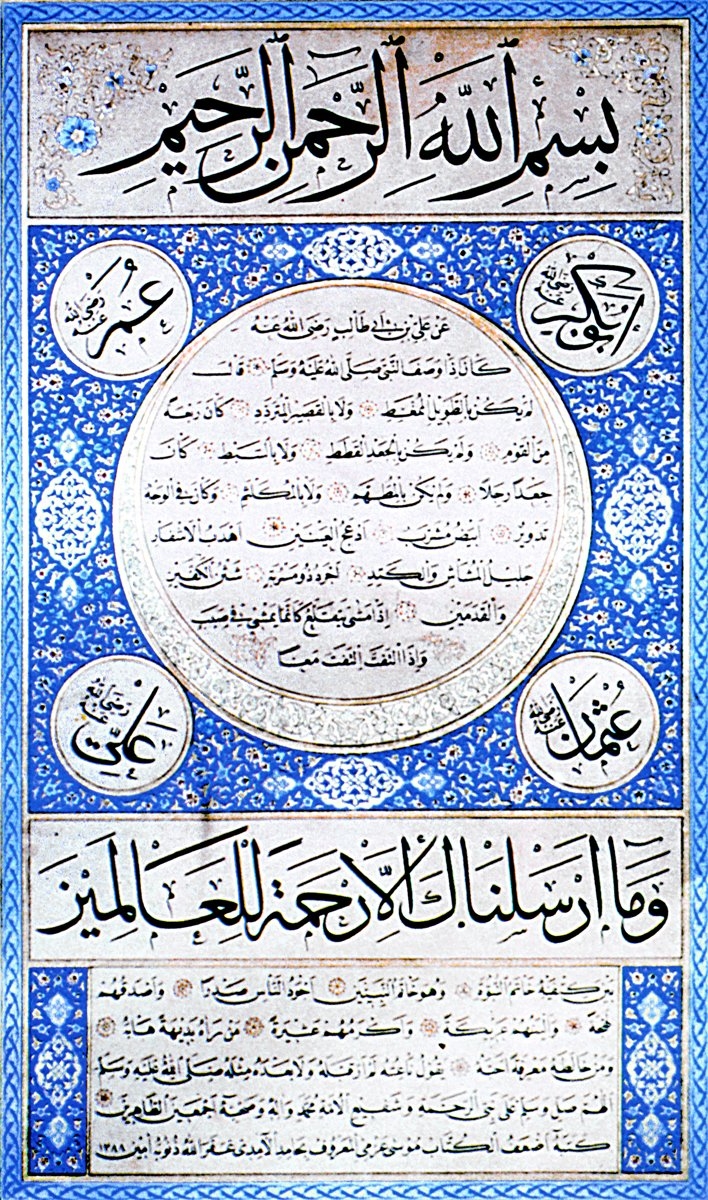 بِسْمِ اللهِ الرَّحْمٰنِ الرَّحِيمِ
ابوبكر رضى الله عنه
عمر رضى الله عنه
عن علي بن ابي طالب رضي الله عنه
كان اذا وصف النبي صلى الله عليه وسلم قال
لم يكن بالطويل الممغط ولا بالقصير المتردد كان ربعة
من القوم ولم يكن بالجعد القطط ولا بالسبط كان
جعدا رجلا ولم يكن بالمطهم ولا بالمكلثم وكان في الوجه
تدوير ابيض مشرب ادعج العينين اهدب الاشفار
جليل المشاش والكتد اجرد ذو مسربة شثن الكفين
والقدمين اذا مشى تقلع كانما يمشي في صبب
واذا التفت التفت معا
عثمان رضى الله عنه
علي رضى الله عنه
وما ارسلناك الا رحمة للعالمين
بين كتفيه خاتم النبوة وهو خاتم النبيين اجود الناس صدرا واصدقهم
لهجة والينهم عريكة واكرمهم عشيرة من راه بديهة هابه
ومن خالطه معرفة احبه يقول ناعته لم ار قبله ولا بعده مثله صلى الله عليه وسلم
اللهم صل وسلم على نبي الرحمة وشفيع الامة محمد واله وصحبه اجمعين الطاهرين
كتبه اضعف الكتاب موسى عزمي المعروف بحامد الآمدي غفر الله ذنوبه امين ١٣٨٨